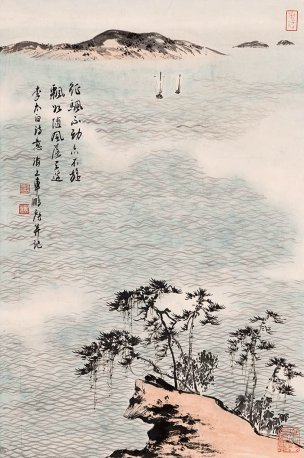 征颿不動亦不旋
飄如隨風落天邊
李太白詩意 海上車鵬飛并記